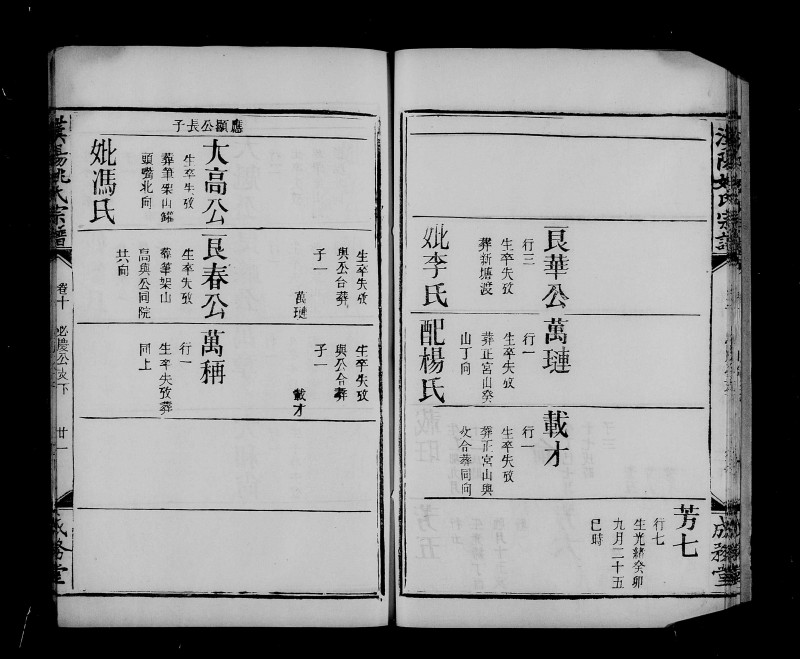 芳七
行七
生光緒癸卯
九月二十五
巳時
艮華公
行三
生卒失攷
葬新塘渡
妣李氏
生卒失攷
與公合葬
子一
萬璉
萬璉
行一
生卒失攷
葬正宮山癸
山丁向
配楊氏
生卒失攷
與公合葬
子一
載才
載才
行一
生卒失攷
葬正宮山與
父合葬同向
應顯公長子
大高公
生卒失攷
葬筆架山鑵
頭嘴北向
妣馮氏
艮春公
生卒失攷
葬筆架山
高與公同院
共向
萬稱
行一
生卒失攷葬
同上
漢陽姚氏宗譜
卷十
必慶公支下
廿一
成務堂
成務堂